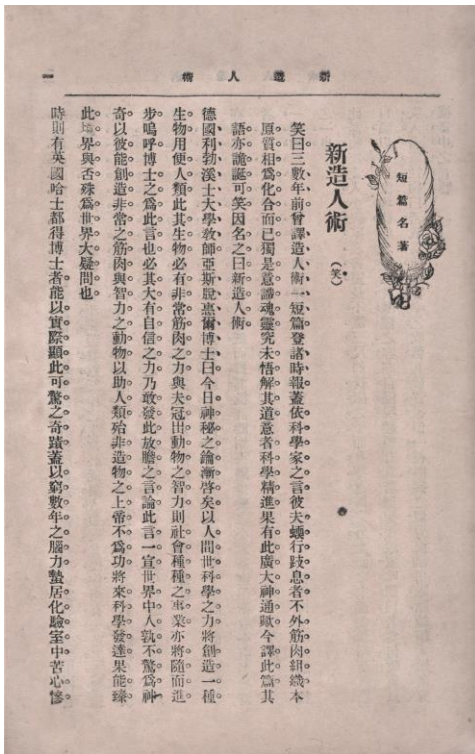 新造人術
一
短篇名著
新造人術（笑）
笑曰三數年前曾譯造人術一短篇登諸時報蓋依科學家之言彼夫蠕行跂息者不外筋肉組織本
原質相爲化合而已獨是意識魂靈究未悟解其道意者科學精進果有此廣大神通歟今譯此篇其
語亦詭誕可笑因名之曰新造人術
德國利勃溪士大學敎師亞斯脫惠爾博士曰今日神秘之鑰漸啓矣以人間世科學之力將創造一種
生物用便人類此其生物必有非常筋肉之力與夫冠出動物之智力則社會種種之事業亦將隨而進
步嗚呼博士之爲此言也必其大有自信之力乃敢發此放膽之言論此言一宣世界中人孰不驚爲神
奇以彼能創造非常之筋肉與智力之動物以助人類殆非造物之上帝不爲功將來科學發達果能臻
此境界與否殊爲世界大疑問也
時則有英國哈士都得博士者能以實際顯此可驚之奇蹟蓋以窮數年之腦力蟄居化驗室中苦心慘